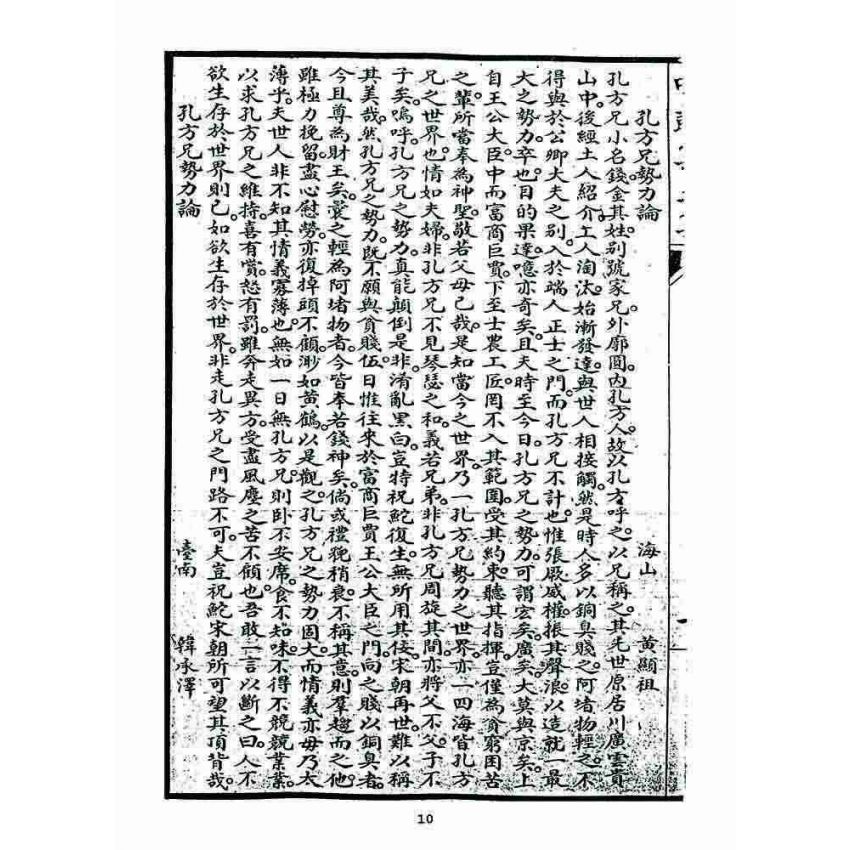 孔方兄勢力論 海山 黃顯祖
孔方兄小名錢金其姓。别號家兄。外廓圓。内孔方。人故以孔方呼之。以兄稱之。其先世原居川廣雲貴
山中。後經土人紹介。工人淘汰。始漸發達。與世人相接觸。然是時人多以銅臭賤之。阿堵物輕之。不
得與於公卿大夫之别。入於端人正士之門。而孔方兄不計也。惟張厥威權。振其聲浪。以造就一最
大之勢力。卒也目的果達。噫亦奇矣。且夫時至今日。孔方兄之勢力。可謂宏矣。廣矣。大莫與京矣。上
自王公大臣。中而富商巨賈。下至士農工匠。罔不入其範圍。受其約束。聽其指揮。豈僅為貧窮困苦
之輩。所當奉為神聖。敬若父母已哉。是知當今之世界。乃一孔方兄勢力之世界。亦一四海皆孔方
兄之世界也。情如夫婦。非孔方兄不見琴瑟之和。義若兄弟。非孔方兄周旋其間。亦將父不父。子不
子矣。嗚呼。孔方兄之勢力。真能顛倒是非。淆亂黑白。豈特祝鮀復生。無所用其佞。宋朝再世。難以稱
其美哉。然孔方兄之勢力。既不願與貧賤伍。日惟往來於富商巨賈王公大臣之門。向之賤以銅臭者。
今且尊為財王矣。曩之輕為阿堵物者。今皆奉若錢神矣。倘或禮貌稍衰。不稱其意。則羣趨而之他。
雖極力挽留。盡心慰勞。亦復掉頭不顧。渺如黃鶴。以是觀之。孔方兄之勢力固大。而情義亦毋乃太
薄乎。夫世人非不知其情義寡薄也。無如一日無孔方兄。則卧不安席。食不知味。不得不競競業業。
以求孔方兄之維持。喜有賞。怒有罰。雖奔走異方。受盡風塵之苦不顧也。吾敢一言以斷之曰。人不
欲生存於世界則已。如欲生存於世界。非走孔方兄之門路不可。夫豈祝鮀宋朝所可望其頂背哉。
孔方兄勢力論 臺南 韓承澤
10